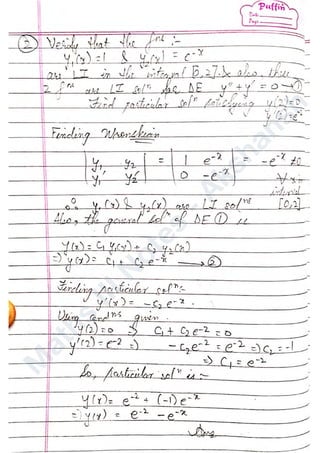 Puffin
Date
Page
② Verify that the fns :-
y₁(x) = 1 & y₂(x) = e⁻ˣ
are LI in the interval [0,2] & also, these
2 fns are LI solⁿ DE y" + y' = 0 → ①
Find particular solⁿ satisfying y(2)=0
y'(2)=e⁻²
Finding Wronskian
| y₁ y₂ | = | 1 e⁻ˣ | = -e⁻ˣ ≠ 0
| y₁' y₂' | | 0 -e⁻ˣ | ∀ x in
interval
∴ y₁(x) & y₂(x) are LI solⁿˢ [0,2]
Also, the general solⁿ of DE ① is
y(x) = C₁ y₁(x) + C₂ y₂(x)
⇒ y(x) = C₁ + C₂ e⁻ˣ → ②
Finding particular solⁿ:-
y'(x) = -C₂ e⁻ˣ.
Using condⁿˢ given.
y(2)=0 ⇒ C₁ + C₂ e⁻² = 0
y'(2) = e⁻² ⇒ -C₂ e⁻² = e⁻² ⇒ C₂ = -1
⇒ C₁ = e⁻²
So, particular solⁿ is :-
y(x) = e⁻² + (-1) e⁻ˣ
⇒ y(x) = e⁻² - e⁻ˣ
Ans